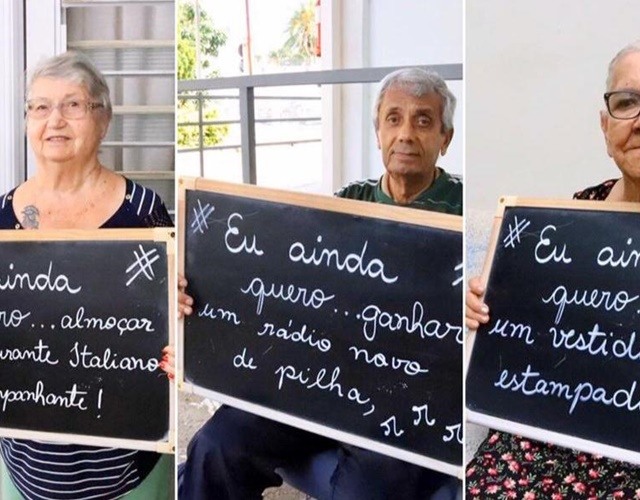 # 
ainda
ro...almoçar
urante Italiano
mpanhante!
# Eu ainda
quero...ganhar
um rádio novo
de pilha,
# Eu ain
quero
um vestid
estampad